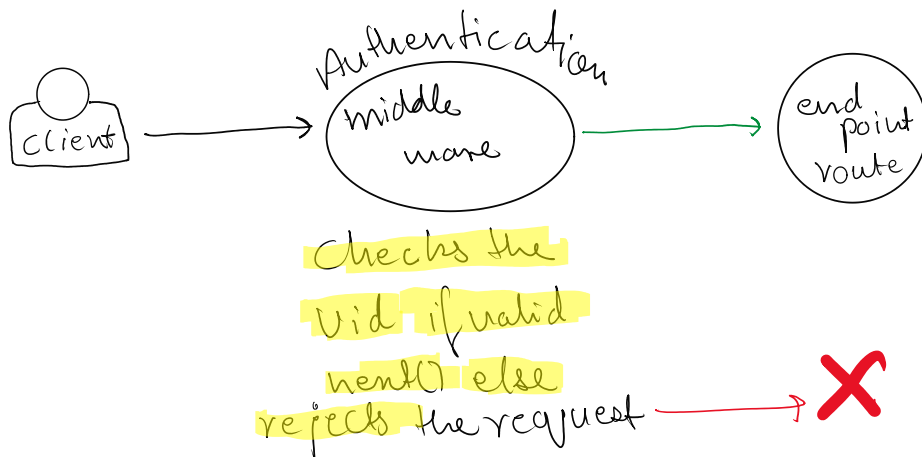 Authentication
client
middle
ware
end
point
route
checks the
uid if valid
next() else
rejects the request